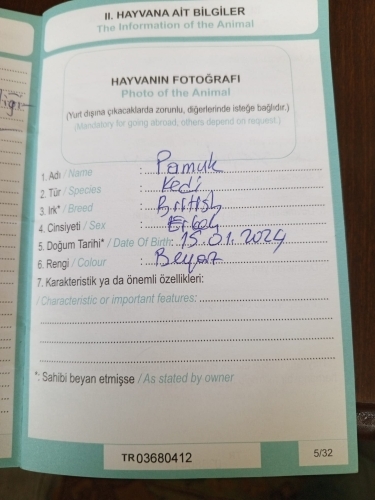 II. HAYVANA AİT BİLGİLER
The Information of the Animal
HAYVANIN FOTOĞRAFI
Photo of the Animal
(Yurt dışına çıkacaklarda zorunlu, diğerlerinde isteğe bağlıdır.)
(Mandatory for going abroad, others depend on request.)
1. Adı / Name : Pamuk
2. Tür / Species : Kedi
3. Irk* / Breed : British
4. Cinsiyeti / Sex : Erkek
5. Doğum Tarihi* / Date Of Birth: 15.01.2024
6. Rengi / Colour : Beyaz
7. Karakteristik ya da önemli özellikleri:
/ Characteristic or important features:
*: Sahibi beyan etmişse / As stated by owner
TR 03680412
5/32